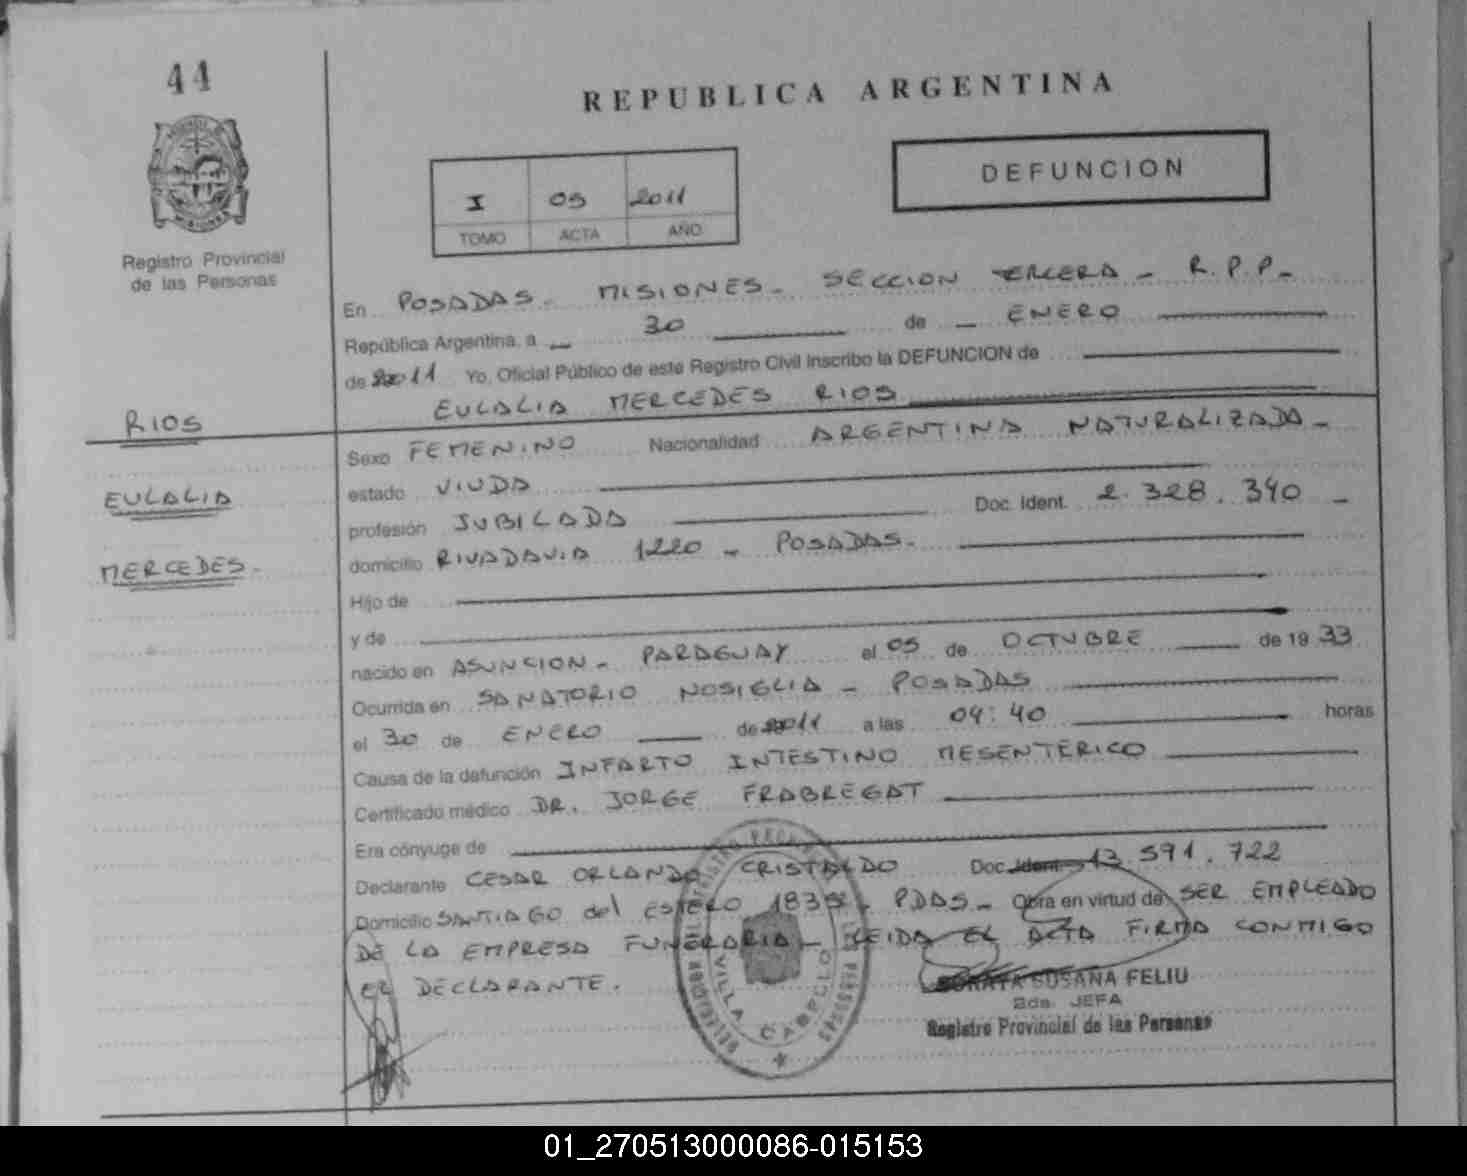 44
REPUBLICA ARGENTINA
DEFUNCION
I 05 2011
TOMO ACTA AÑO
Registro Provincial
de las Personas
En POSADAS - MISIONES - SECCION TERCERA - R.P.P. -
República Argentina, a 30 de ENERO
de 2011 Yo, Oficial Público de este Registro Civil inscribo la DEFUNCION de
EULALIA MERCEDES RIOS
RIOS
EULALIA
MERCEDES -
Sexo FEMENINO Nacionalidad ARGENTINA NATURALIZADA -
estado VIUDA
profesión JUBILADA Doc. Ident. 2.328.340 -
domicilio RIVADAVIA 1220 - POSADAS -
Hijo de
y de
nacido en ASUNCION - PARAGUAY el 05 de OCTUBRE de 1933
Ocurrida en SANATORIO NOSIGLIA - POSADAS
el 30 de ENERO de 2011 a las 04:40 horas
Causa de la defunción INFARTO INTESTINO MESENTERICO
Certificado médico DR. JORGE FRABREGAT
Era cónyuge de
Declarante CESAR ORLANDO CRISTALDO Doc. Ident. 13.591.722
Domicilio SANTIAGO del ESTERO - PDAS - Obra en virtud de SER EMPLEADO
DE LA EMPRESA FUNERARIA - LEIDA EL ACTA FIRMA CONMIGO
EL DECLARANTE.
VILLA CABELLO
SORAYA SUSANA FELIU
2da. JEFA
Registro Provincial de las Personas
01_270513000086-015153